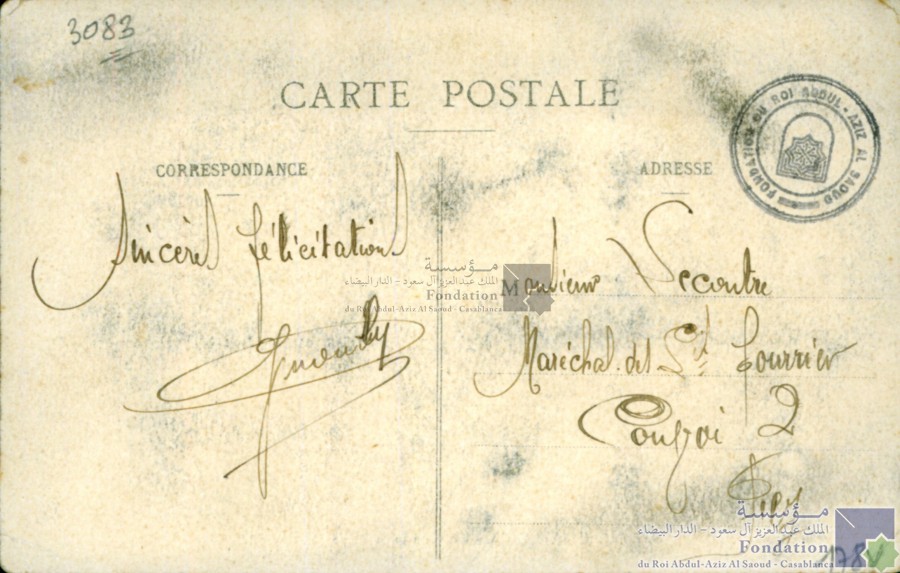 3083
CARTE POSTALE
FONDATION DU ROI ABDUL-AZIZ AL SAOUD
CORRESPONDANCE
Sincères félicitations
ADRESSE
Monsieur Lecomtre
Maréchal des Lis Fourrier
Convoi 2
Fez
مؤسسة
الملك عبد العزيز آل سعود - الدار البيضاء
Fondation
du Roi Abdul-Aziz Al Saoud - Casablanca
مؤسسة
الملك عبد العزيز آل سعود - الدار البيضاء
Fondation
du Roi Abdul-Aziz Al Saoud - Casablanca